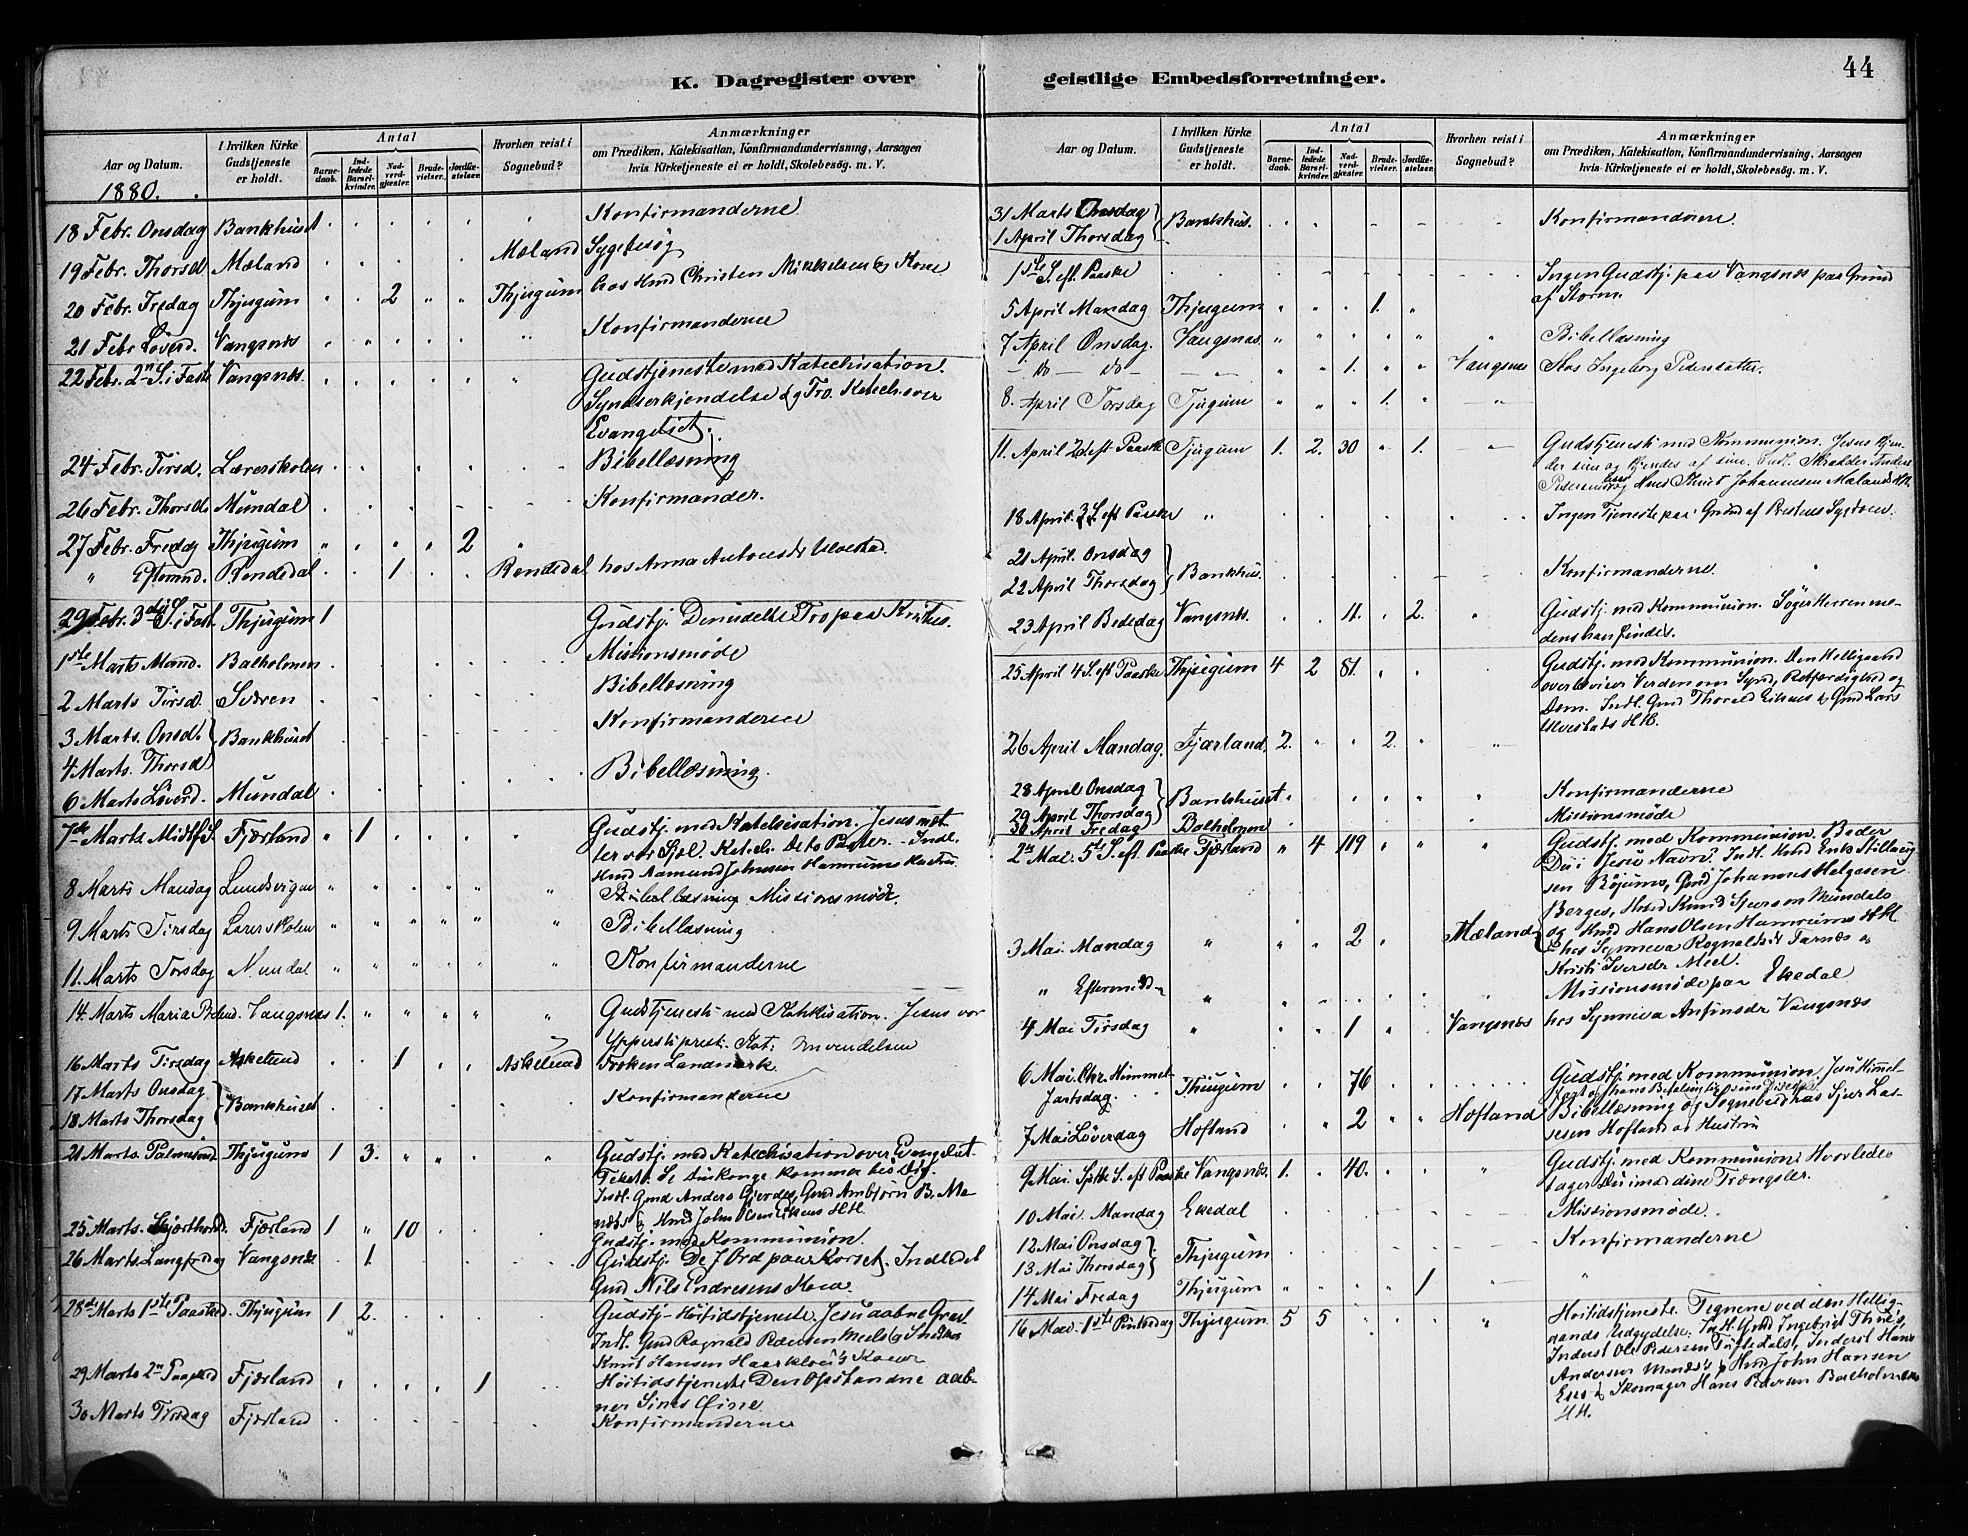 44
K. Dagregister over geistlige Embedsforretninger.
Aar og Datum.
I hvilken Kirke Gudstjeneste er holdt.
Antal
Barnedaab.
Indledede Barselkvinder.
Nadverdgjester.
Brudevielser.
Jordfæstelser.
Hvorhen reist i Sognebud?
Anmærkninger
om Prædiken, Katekisation, Konfirmandundervisning, Aarsagen
hvis Kirketjeneste ei er holdt, Skolebesøg. m. V.
1880.
18 Febr. Onsdag Bankhuset Konfirmanderne
19 Febr. Thorsd Mæland Mæland Sygebesøg
20 Febr. Fredag Thjugum 2 Thjugum hos Hmd Christen Mikkelsen og Kone
21 Febr Løverd. Vangsnæs Konfirmanderne
22 Febr. 2n S. i Faste Vangsnæs. Gudstjeneste med Katechisation.
Synderkjendelse og Tro. Katech. over
Evangeliet.
24 Febr. Tirsd. Lærerskolen Bibellæsning
26 Febr. Thorsd. Mundal Konfirmander.
27 Febr. Fredag Thjugum 2
" Eftermd. Rendedal 1 Rendedal hos Anna Antonsdr
29 Febr. 3die S. i Fast Thjugum 1 Gudstj. Den udelte Tro paa Kristus.
1ste Marts Mand. Balholmen Missionsmøde
2 Marts Tirsd. Sværen Bibellæsning
3 Marts. Onsd. Bankhuset Konfirmanderne
4 Marts. Thorsd
6 Marts Løverd. Mundal Bibellæsning.
7de Marts. Midtf.S. Fjærland 1 Gudstj. med Katekisation. Jesus mæt-
ter vor Sjæl. Katech. Indl.
Hmd Aamund Johnsen Hamrums Hustru
8 Marts Mandag Lundsvigen Bibellæsning Missionsmøde.
9 Marts Tirsdag Lærerskolen Bibellæsning
11. Marts Torsdag Mundal Konfirmanderne
14. Marts Maria Vangsnæs 1. Gudstjeneste med Katekisation. Jesus vor
Ypperstiprest. Kat:
16 Marts Tirsdag Askelund 1 Askelund Frøken Landmark.
17 Marts Onsdag Bankhuset Konfirmanderne
18 Marts Thorsdag
21 Marts Palmesønd Thjugum 1 3. Gudstj. med Katechisation over Evangeliet.
Se din Konge kommer til Dig.
Indl. Gmd Anders Gjerdes, Gmd Ambjørn B. Me-
næs & Hmd John Olsen HH.
25 Marts. Skjærthord. Fjærland 1 " 10 Gudstj. med Kommunion.
26 Marts. Langfredag Vangsnæs. 1. Gudstj. De 7 Ord paa Korset. Indledet
Gmd Nils Endresens Kone.
28de Marts 1ste Paasked. Thjugum 1 2. Gudstj. Høitidstjeneste. Jesu aabne Grav.
Indl. Gmd Ragnald Pedersen Meels &
Knut Hansen Koner
29 Marts 2n Paasked Fjærland 1 Høitidstjeneste Den Opstandne aab-
ner Sines Øine.
30 Marts Tirsdag Fjærland Konfirmanderne
Aar og Datum.
I hvilken Kirke Gudstjeneste er holdt.
Antal
Barnedaab.
Indledede Barselkvinder.
Nadverdgjester.
Brudevielser.
Jordfæstelser.
Hvorhen reist i Sognebud?
Anmærkninger
om Prædiken, Katekisation, Konfirmandundervisning, Aarsagen
hvis Kirketjeneste ei er holdt, Skolebesøg. m. V.
31 Marts Onsdag Bankhus. Konfirmanderne
1 April Thorsdag
1ste S. eft Paaske Ingen Gudstj. paa Vangsnæs paa Grund
af Storm.
5 April Mandag Thjugum 1.
7 April Onsdag. Vangsnæs Bibellæsning
— do — do — 1. Vangsnes Hos Ingeborg Pedersdatter.
8. April Torsdag Tjugum 1.
11. April 2d eft Paaske Tjugum 1. 2. 30 1. Gudstjeneste med Kommunion. Jesus kjen-
der sine og kjendes af sine. Indl. Skrædder Anders
Pedersen og Hmd Johannesen Mælands HH.
18 April. 3 S. eft Paaske " Ingen Tjeneste paa Grund af Sygdom.
21 April. Onsdag Bankhus. Konfirmanderne.
22 April Thorsdag
23 April Bededag Vangsnæs. 11. 2. Gudstj. med Kommunion. Søger Herren me-
dens han findes.
25 April 4 S. eft Paaske Thjugum 4 2 81. Gudstj. med Kommunion. Den Helligaand
overbeviser Verden om Synd, Retfærdighed og
Dom. Indl. Gmd Thorald & Gmd Lars
HH.
26 April Mandag. Fjærland. 2. 2.
28 April Onsdag Bankhuset Konfirmanderne
29 April Thorsdag
30 April Fredag Balholmen Missionsmøde
2n Mai. 5te S. eft Paaske Fjærland " 4 119 Gudstj. med Kommunion. Beder
Du i Jesu Navn. Indl. Hmd Erik
sen Røjums, Gmd Johannes Helgesen
Berges, Hmd Knud Sjursen Mundals
og Hmd Hans Olsen Hamrums HH
3 Mai. Mandag " 2 Mæland hos Synneva Ragnaldsdr Farnæs &
Kristi Iversdr Meel.
" Eftermidd. " Missionsmøde paa Ekedal
4 Mai Tirsdag " 1 Vangsnæs hos Synneva Ansinsdr Vangsnæs
6 Mai. Chr. Himmel- Thjugum 76 Gudstj. med Kommunion. Jesu Himmel-
fartsdag. fart & hans Befaling til sine Disciple.
7 Mai Løverdag Hofland 2 Hofland Bibellæsning og Sognebud hos Sjur Las-
sesen Hofland og Hustru
9 Mai. S. eft Paaske Vangsnæs. 1. 40. Gudstj. med Kommunion. Hvorledes
tager Du imod dine Trængsler.
10 Mai. Mandag Ekedal Missionsmøde.
12 Mai Onsdag Thjugum Konfirmanderne
13 Mai Thorsdag
14 Mai Fredag Thjugum 1 "
16 Mai. 1ste Pintsedag Thjugum 5 5 Høitidstjeneste. Tegnene ved den Hellig-
aands Udgydelse. Indl. Gmd Ingebrigt
Inderst Ole Pedersen Tuftedals, Inderst Hans
Andersen Menæs's & Hmd John Hansen
Eses & Skomager Hans Pedersen Balholmens
HH.